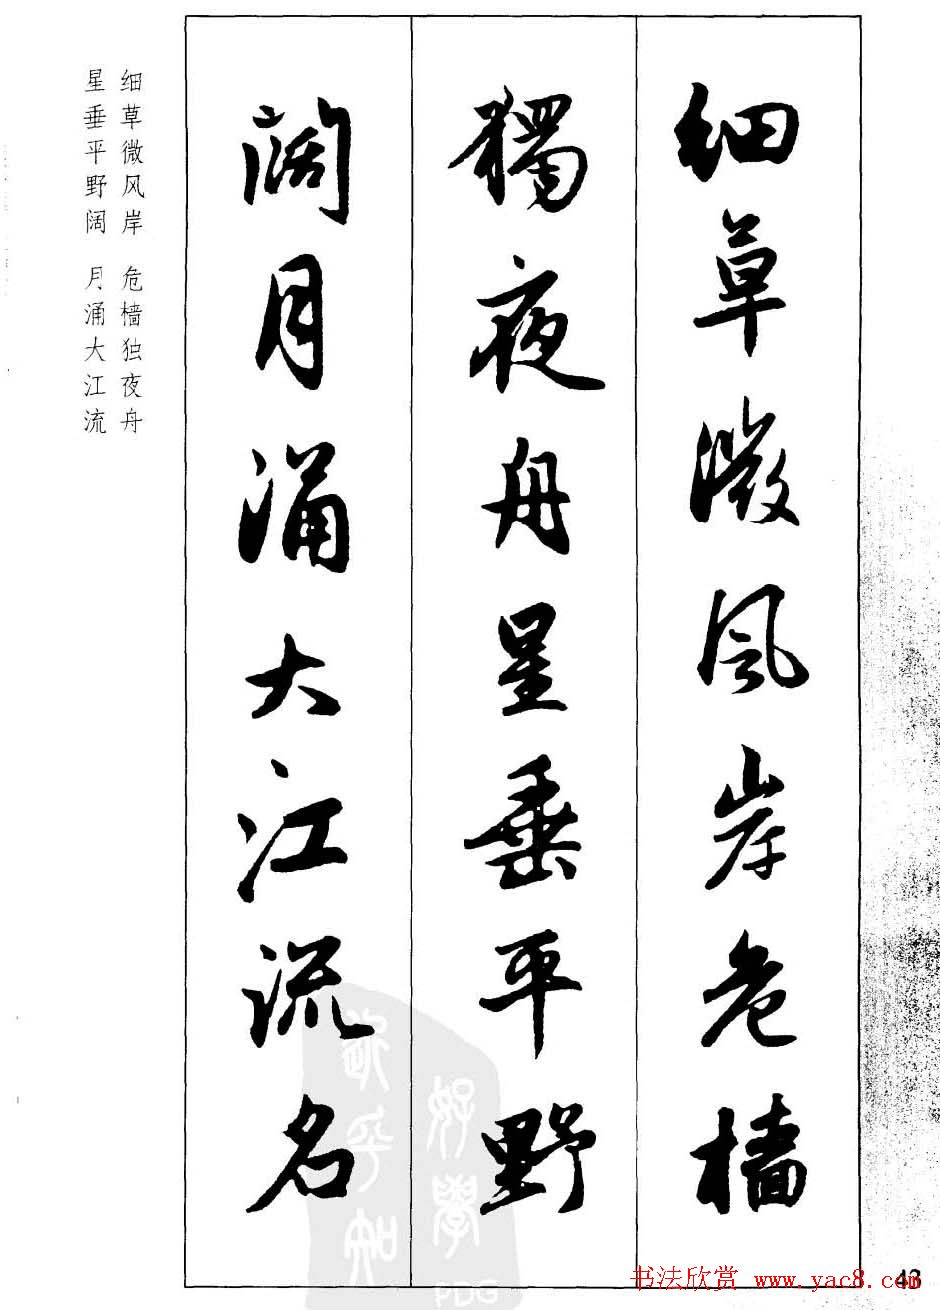 细草微风岸危樯
獨夜舟星垂平野
阔月涌大江流名
细草微风岸 危樯独夜舟
星垂平野阔 月涌大江流
欲平知
好學
PDG
43
书法欣赏 www.yac8.com